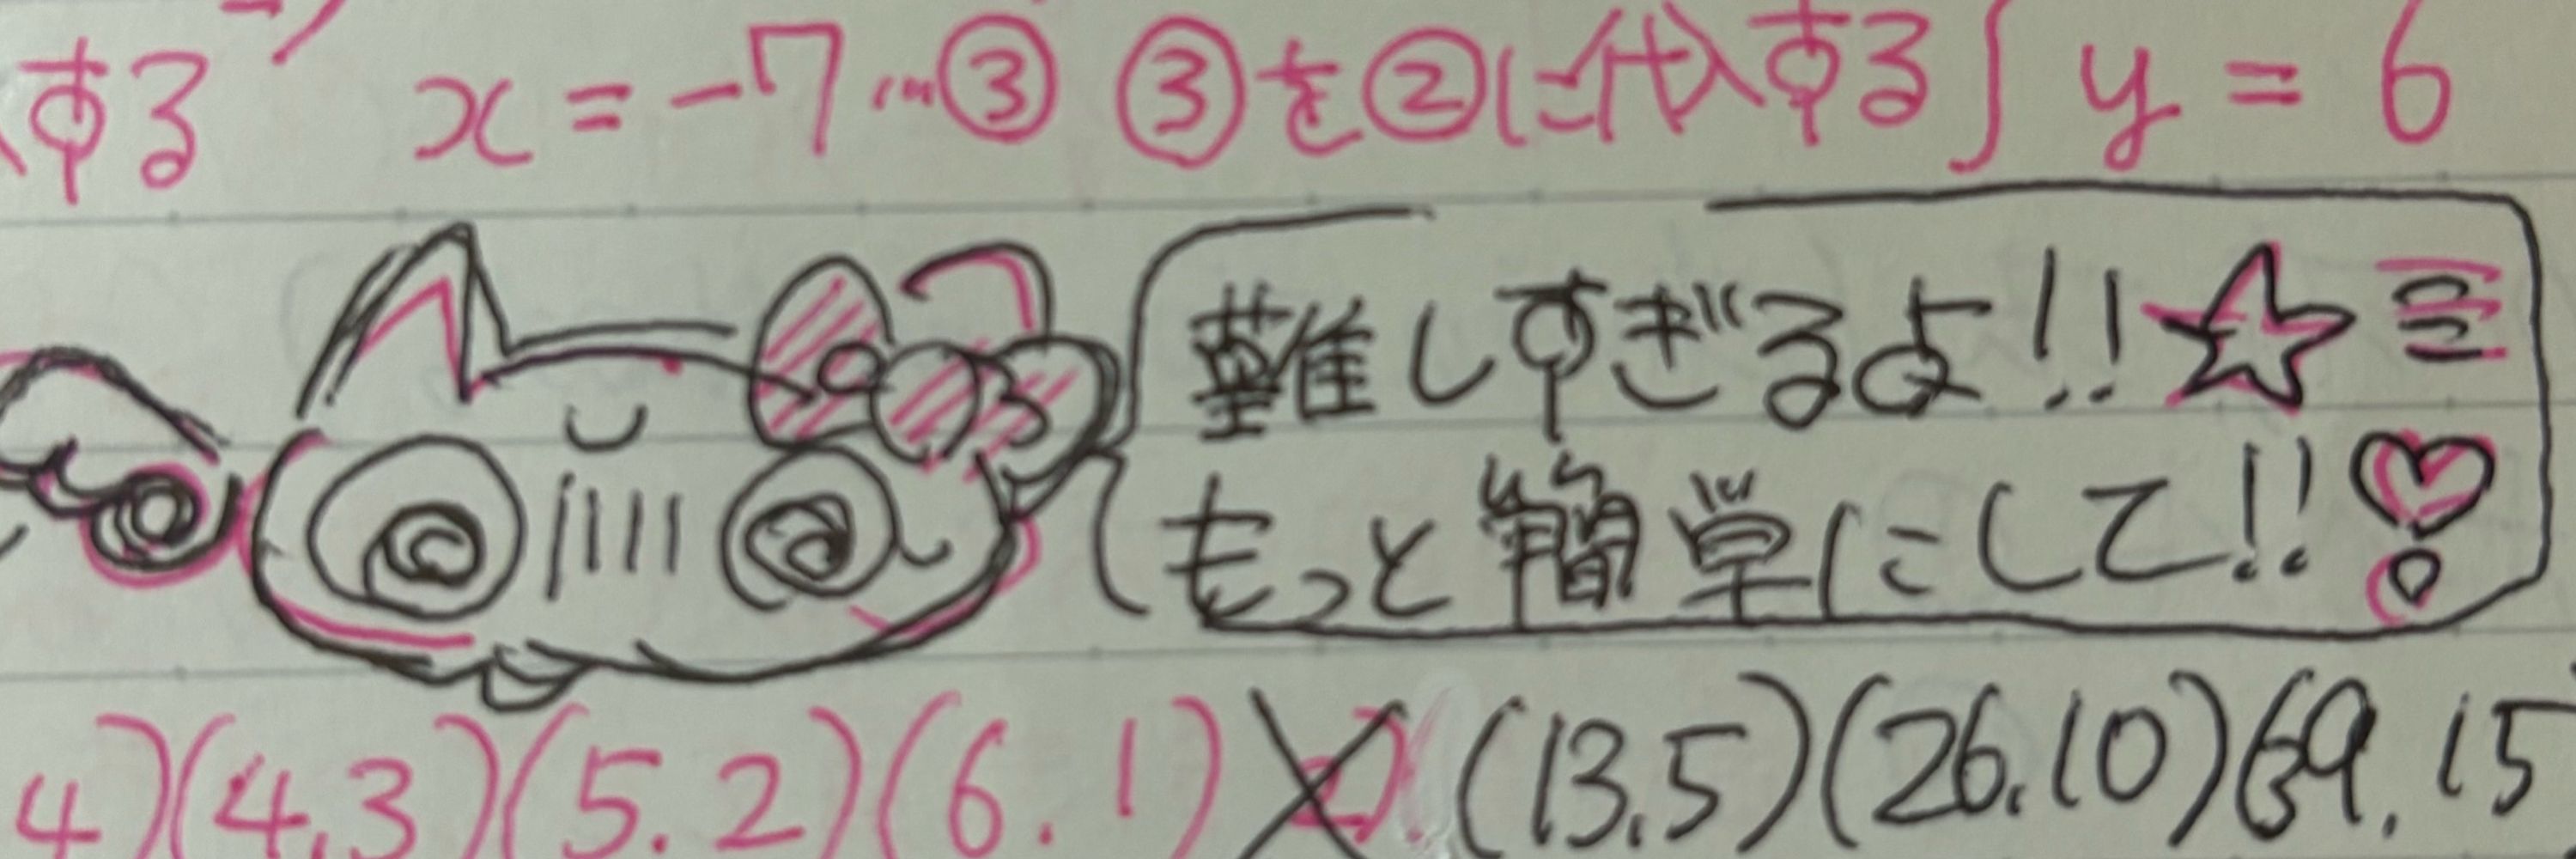 する x = -7 … ③ ③を②に代入する y = 6
難しすぎるよ!!☆
もっと簡単にして!!♡
4)(4.3)(5.2)(6.1) (13.5)(26.10)(39.15